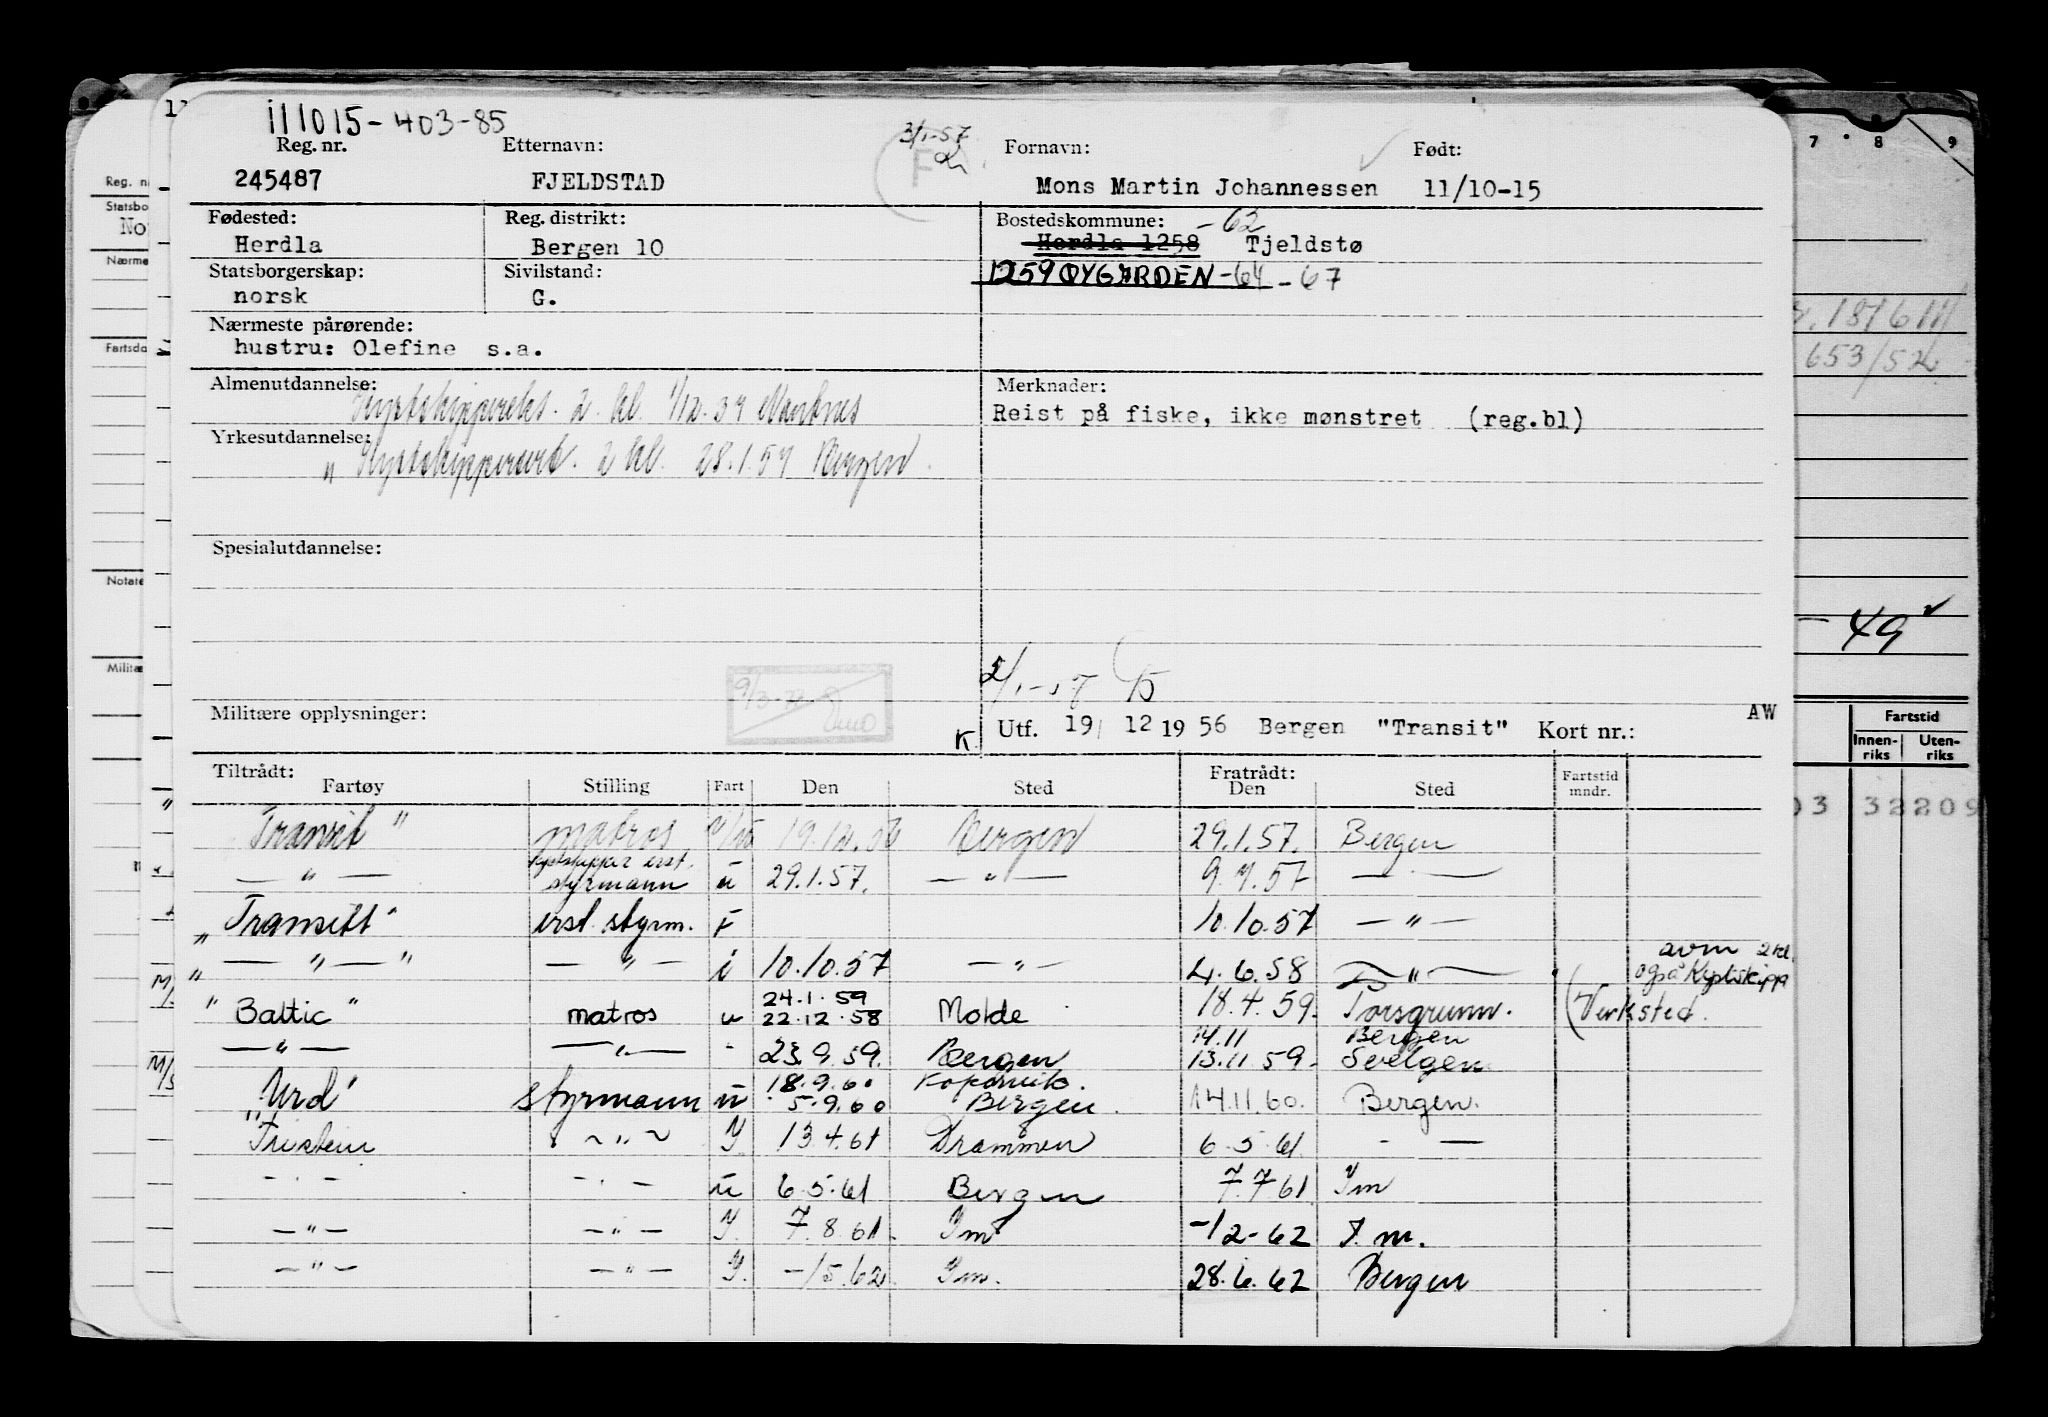 111015-403-85
3/1-57
Reg. nr. Etternavn: Fornavn: Født:
245487 FJELDSTAD F Mons Martin Johannessen 11/10-15
Fødested: Reg. distrikt: Bostedskommune: -62
Herdla Bergen 10 Herdla 1258 Tjeldstø
Statsborgerskap: Sivilstand: 1259 ØYGARDEN -64 -67
norsk G.
Nærmeste pårørende:
hustru: Olefine s.a.
Almenutdannelse: Merknader:
2. kl. Reist på fiske, ikke mønstret (reg.bl)
Yrkesutdannelse:
" 2 kl. 28.1.57 Bergen.
Spesialutdannelse:
Militære opplysninger: K. Utf. 19/ 12 19 56 Bergen "Transit" Kort nr.: AW
Tiltrådt: Fratrådt: Fartstid
Fartøy Stilling Fart Den Sted Den Sted mndr.
Transit" matros 19.12.56 Bergen 29.1.57. Bergen
— " — styrmann u 29.1.57. — " — 9.7.57 — —
"Transitt" erst. styrm. F 10.10.57 — " —
" — " — " — " — i 10.10.57 — " — 4.6.58 — " — avm 2 kl.
også Kystskipp
24.1.59
"Baltic" matros u 22.12.58 Molde 18.4.59. (Verksted.
14.11 Bergen
— " — — " — " 23.9.59. Bergen 13.11.59. Svelgen
18.9.60 Kopervik.
"Urd" styrmann u 5.9.60 Bergen. 14.11.60. Bergen.
Tristein ~ " ~ Y. 13.4.61 Drammen 6.5.61. - —
- . - - . - u 6.5.61 Bergen 7.7.61 Ym
— " — — " — Y. 7.8.61. Ym -12-62 I m.
— " — — " — Y. -/5.62. Ym. 28.6.62 Bergen
7 8 9
653/52
- 49
Fartstid
Innen- Uten-
riks riks
03 32209
Reg. n
Statsbo
No
Nærme
Fartsda
Notate
Militæ